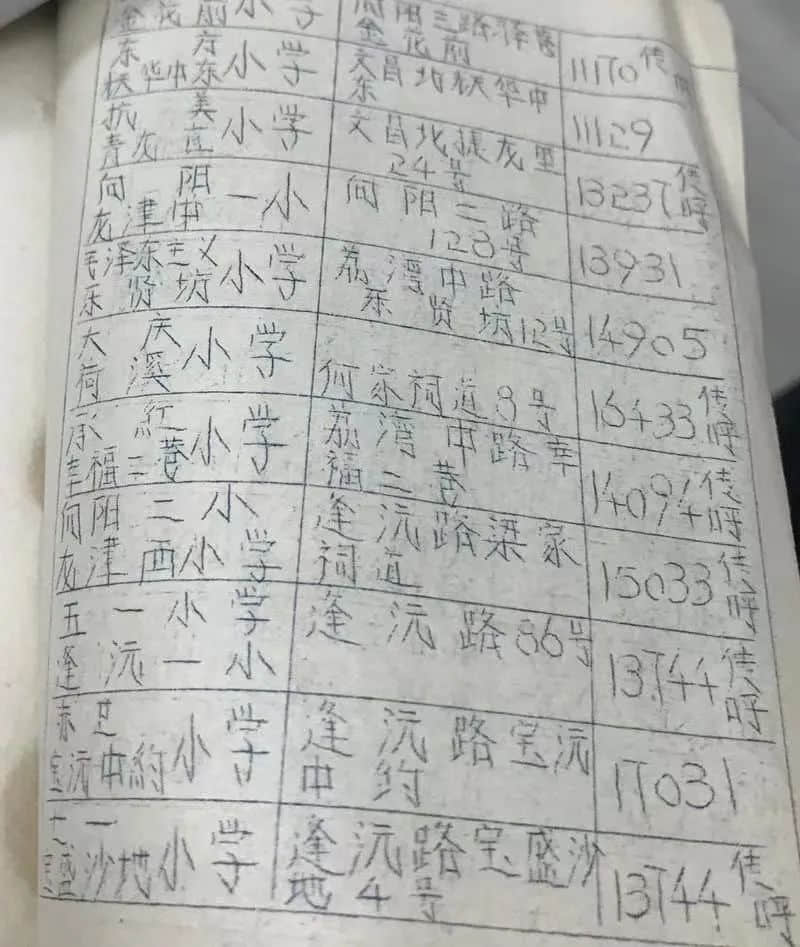 金花廟小学
向阳三路
金花廟
11170 传呼
东方小学
秩华中东
文昌北秩华中
东
11129
抗美小学
青龙直
文昌北振龙里
24号
13237 传呼
向阳一小
龙津中
向阳二路
123号
13931
毛泽东主义小学
乐贤坊
荔湾中路
乐贤坊12号
14905
大庆小学
荷溪
何家祠道8号
16433 传呼
永红小学
幸福二巷
荔湾中路幸
福二巷
14094 传呼
向阳二小
龙津西小学
逢沅路梁家
祠道
15033 传呼
五一小学
逢沅一小
逢沅路86号
13744 传呼
小学
宝沅中约
逢沅路宝沅
中约
17031
一小学
盛沙地
逢沅路宝盛沙
地4号
13744 传呼